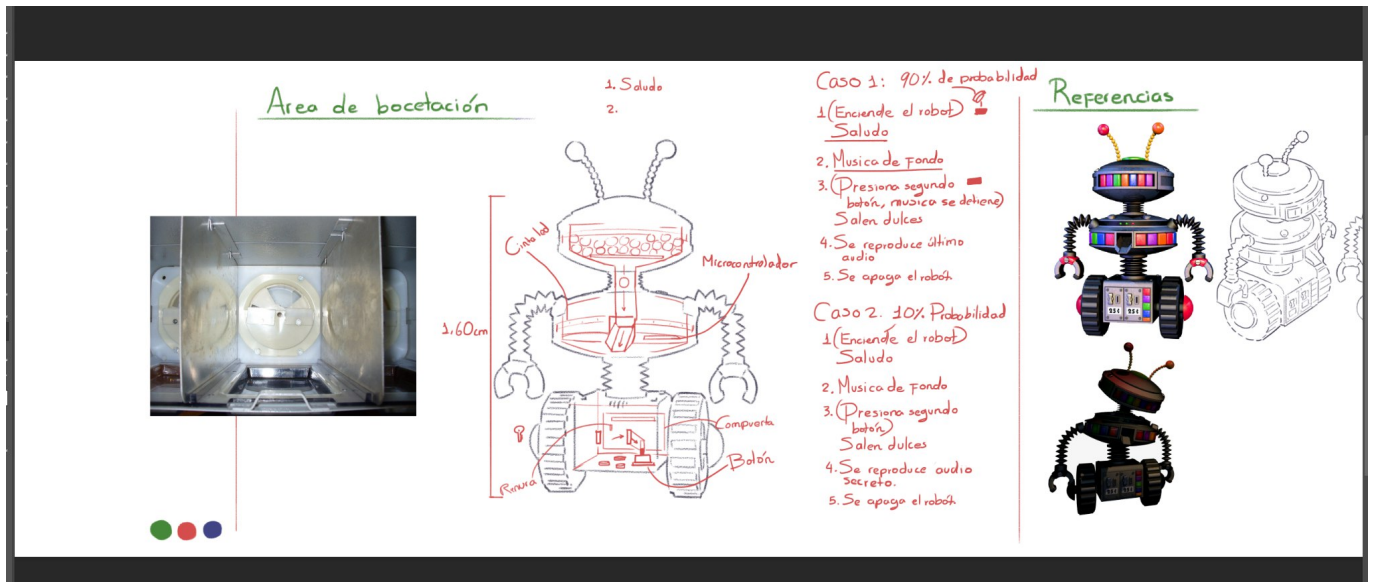 Area de bocetación
1. Saludo
2.
Cinta led
Microcontrolador
1,60cm
Compuerta
Botón
Ranura
Caso 1: 90% de probabilidad
1 (Enciende el robot)
Saludo
2. Musica de fondo
3. (Presiona segundo
botón, musica se detiene)
Salen dulces
4. Se reproduce último
audio
5. Se apaga el robot
Caso 2. 10% Probabilidad
1 (Enciende el robot)
Saludo
2. Musica de fondo
3. (Presiona segundo
botón)
Salen dulces
4. Se reproduce audio
secreto.
5. Se apaga el robot
Referencias
25¢ 25¢